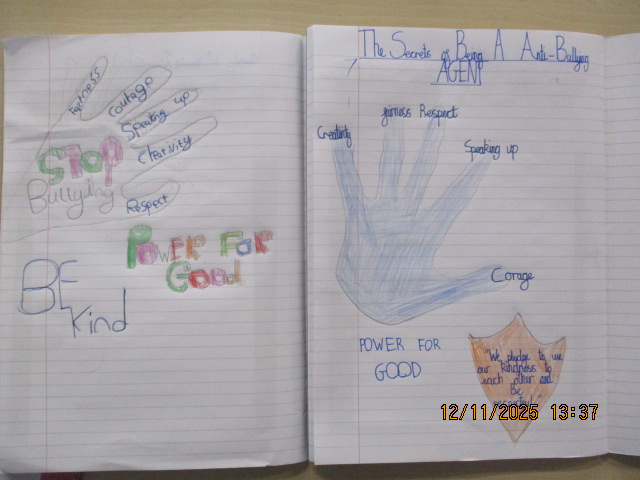 Fairness
Courage
Speaking up
Creativity
Respect
STOP
Bullying
POWER FOR
GOOD
BE
Kind
The Secrets of Being A Anti-Bullying
AGENT
Creativity
fairness
Respect
Speaking up
Corage
POWER FOR
GOOD
"We pledge to use
our kindness to
each other and
Be
respectful"
12/11/2025 13:37